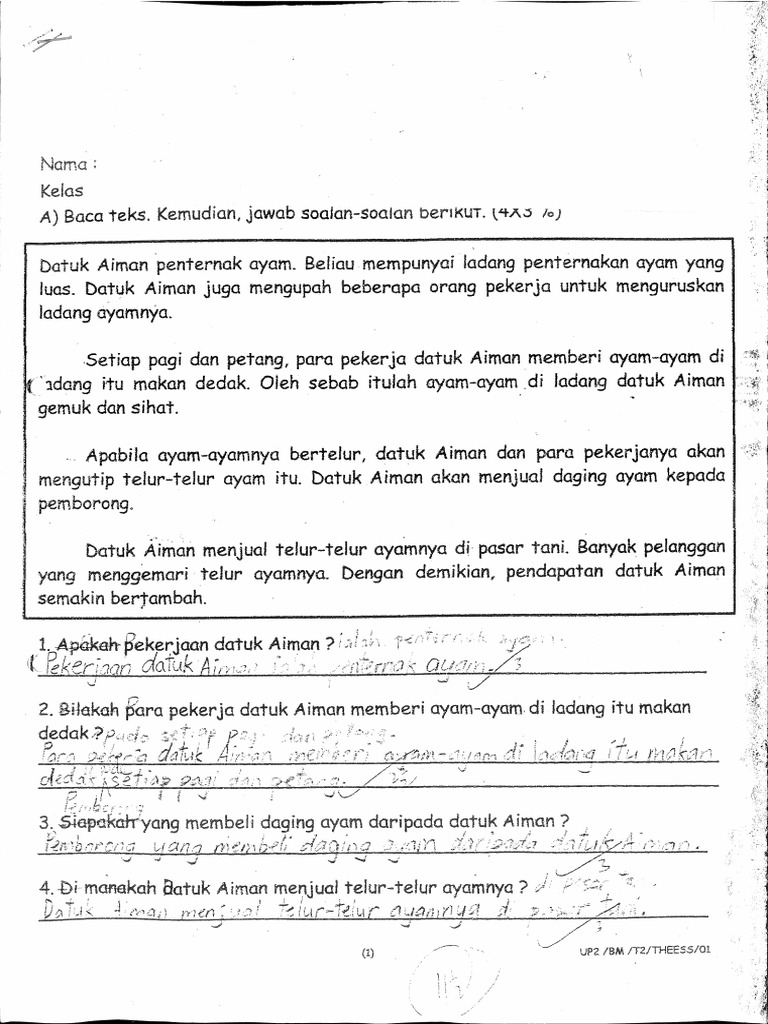 Nama :
Kelas
A) Baca teks. Kemudian, jawab soalan-soalan berikut. (4X3 %)
Datuk Aiman penternak ayam. Beliau mempunyai ladang penternakan ayam yang
luas. Datuk Aiman juga mengupah beberapa orang pekerja untuk menguruskan
ladang ayamnya.
Setiap pagi dan petang, para pekerja datuk Aiman memberi ayam-ayam di
ladang itu makan dedak. Oleh sebab itulah ayam-ayam di ladang datuk Aiman
gemuk dan sihat.
Apabila ayam-ayamnya bertelur, datuk Aiman dan para pekerjanya akan
mengutip telur-telur ayam itu. Datuk Aiman akan menjual daging ayam kepada
pemborong.
Datuk Aiman menjual telur-telur ayamnya di pasar tani. Banyak pelanggan
yang menggemari telur ayamnya. Dengan demikian, pendapatan datuk Aiman
semakin bertambah.
1. Apakah pekerjaan datuk Aiman ? ialah penternak ayam.
Pekerjaan datuk Aiman ialah penternak ayam. 3
2. Bilakah para pekerja datuk Aiman memberi ayam-ayam di ladang itu makan
dedak ? pada setiap pagi dan petang.
Para pekerja datuk Aiman memberi ayam-ayam di ladang itu makan
dedak pada setiap pagi dan petang.
Pemborong
3. Siapakah yang membeli daging ayam daripada datuk Aiman ?
Pemborong yang membeli daging ayam daripada datuk Aiman.
3
4. Di manakah datuk Aiman menjual telur-telur ayamnya ? di pasar
Datuk Aiman menjual telur-telur ayamnya di pasar tani.
(1)
UP2 /BM /T2/THEESS/01